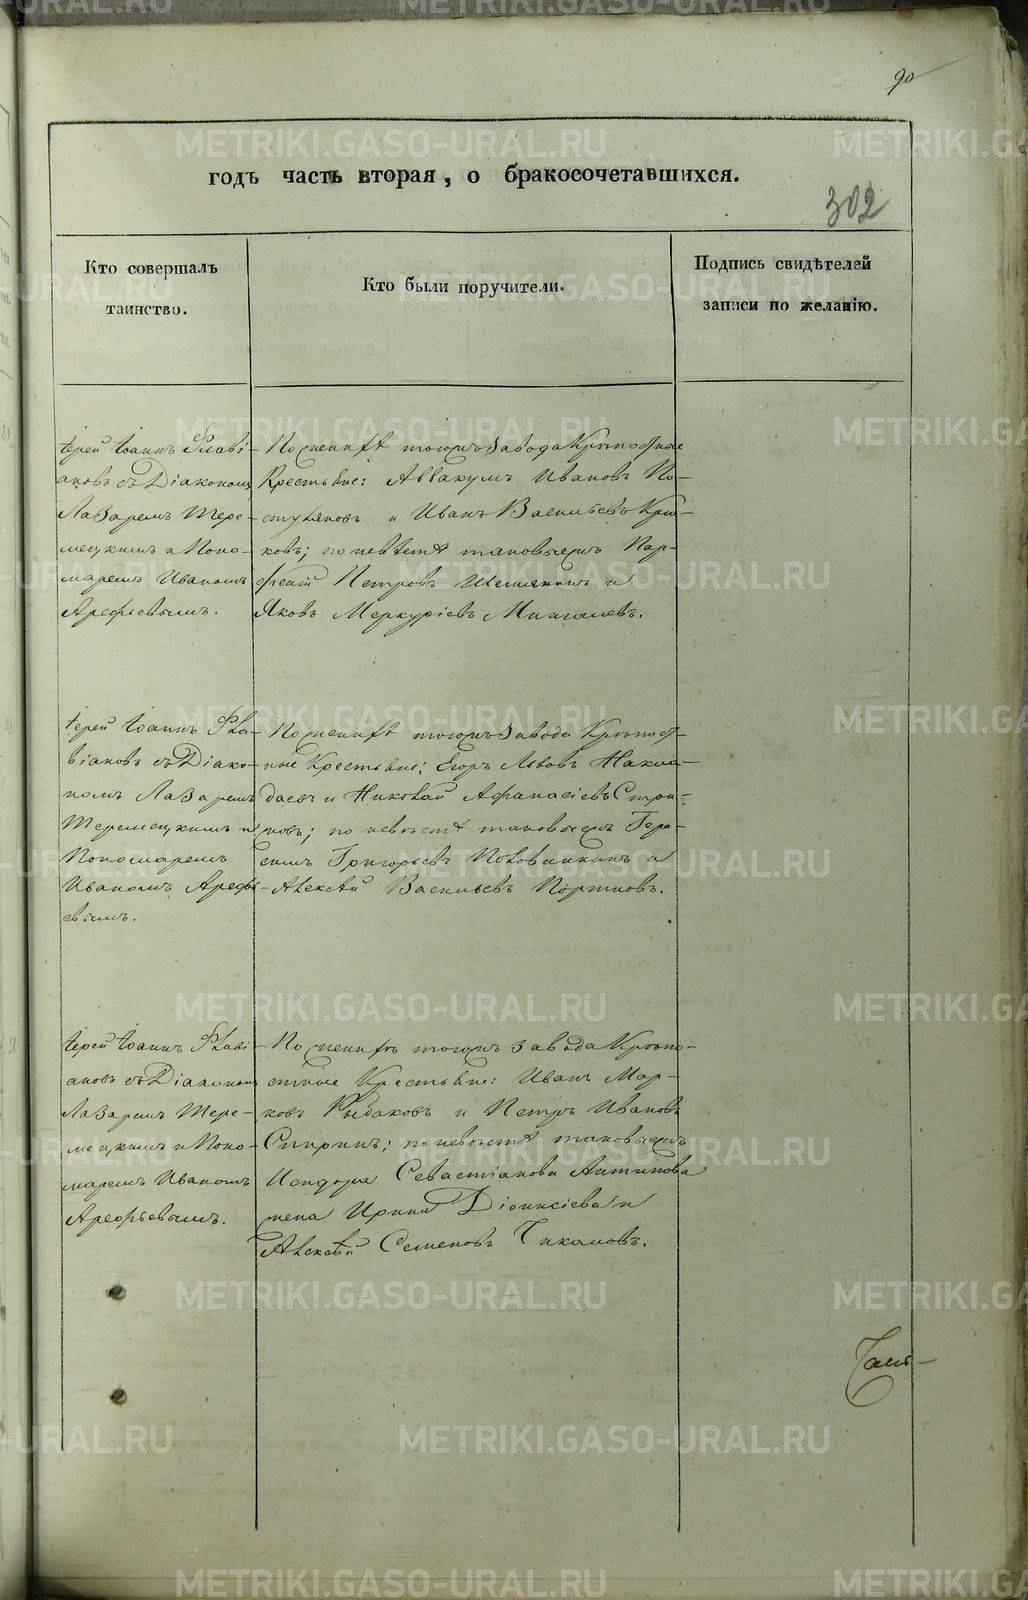 90
годъ часть вторая, о бракосочетавшихся.
302
Кто совершалъ
таинство.
Кто были поручители.
Подпись свидѣтелей
записи по желанію.
Іерей Іоаннъ Флаві-
ановъ съ Діакономъ
Лазаремъ Тере-
мецкимъ и Поно-
маремъ Иваномъ
Арефьевымъ.
По женихѣ тогожъ завода Крѣпостные
Крестьяне: Аввакумъ Ивановъ По-
и Иванъ Васильевъ
ковъ; по невѣстѣ таковыежъ Пар-
феній Петровъ и
Яковъ Меркуріевъ
Іерей Іоаннъ Фла-
віановъ съ Діако-
номъ Лазаремъ
Теремецкимъ и
Пономаремъ
Иваномъ Арефь-
евымъ.
По женихѣ тогожъ завода Крѣпост-
ные Крестьяне: Егоръ Львовъ
и Николай Афанасіевъ
по невѣстѣ таковыежъ Гера-
симъ Григорьевъ Половинкинъ и
Алексѣй Васильевъ Портновъ.
Іерей Іоаннъ Флаві-
ановъ съ Діакономъ
Лазаремъ Тере-
мецкимъ и Поно-
маремъ Иваномъ
Арефьевымъ.
По женихѣ тогожъ завода Крѣпо-
стные Крестьяне: Иванъ Мар-
ковъ Рыбаковъ и Петръ Ивановъ
Спиринъ; по невѣстѣ таковыежъ
Исидора Севастіанова Антипова
жена Ирина Діонисіева и
Алексѣй Семеновъ Чикановъ.
METRIKI.GASO-URAL.RU